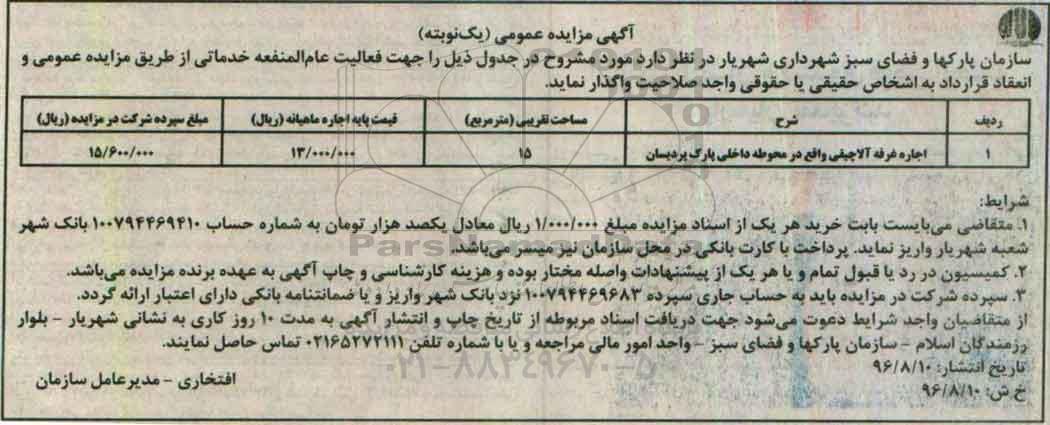 آگهی مزایده عمومی (یک‌نوبته)
سازمان پارکها و فضای سبز شهرداری شهریار در نظر دارد مورد مشروح در جدول ذیل را جهت فعالیت عام‌المنفعه خدماتی از طریق مزایده عمومی و
انعقاد قرارداد به اشخاص حقیقی یا حقوقی واجد صلاحیت واگذار نماید.
ردیف شرح مساحت تقریبی (مترمربع) قیمت پایه اجاره ماهیانه (ریال) مبلغ سپرده شرکت در مزایده (ریال)
۱ اجاره غرفه آلاچیقی واقع در محوطه داخلی پارک پردیسان ۱۵ ۱۳/۰۰۰/۰۰۰ ۱۵/۶۰۰/۰۰۰
شرایط:
۱. متقاضی می‌بایست بابت خرید هر یک از اسناد مزایده مبلغ ۱/۰۰۰/۰۰۰ ریال معادل یکصد هزار تومان به شماره حساب ۱۰۰۷۹۴۴۶۹۴۱۰ بانک شهر
شعبه شهریار واریز نماید. پرداخت با کارت بانکی در محل سازمان نیز میسر می‌باشد.
۲. کمیسیون در رد یا قبول تمام و یا هر یک از پیشنهادات واصله مختار بوده و هزینه کارشناسی و چاپ آگهی به عهده برنده مزایده می‌باشد.
۳. سپرده شرکت در مزایده باید به حساب جاری سپرده ۱۰۰۷۹۴۴۶۹۶۸۳ نزد بانک شهر واریز و یا ضمانتنامه بانکی دارای اعتبار ارائه گردد.
از متقاضیان واجد شرایط دعوت می‌شود جهت دریافت اسناد مربوطه از تاریخ چاپ و انتشار آگهی به مدت ۱۰ روز کاری به نشانی شهریار – بلوار
رزمندگان اسلام – سازمان پارکها و فضای سبز – واحد امور مالی مراجعه و یا با شماره تلفن ۰۲۱۶۵۲۷۲۱۱۱ تماس حاصل نمایند.
تاریخ انتشار: ۹۶/۸/۱۰
خ ش: ۹۶/۸/۱۰
افتخاری – مدیرعامل سازمان
۰۲۱-۸۸۳۴۹۶۷۰-۵